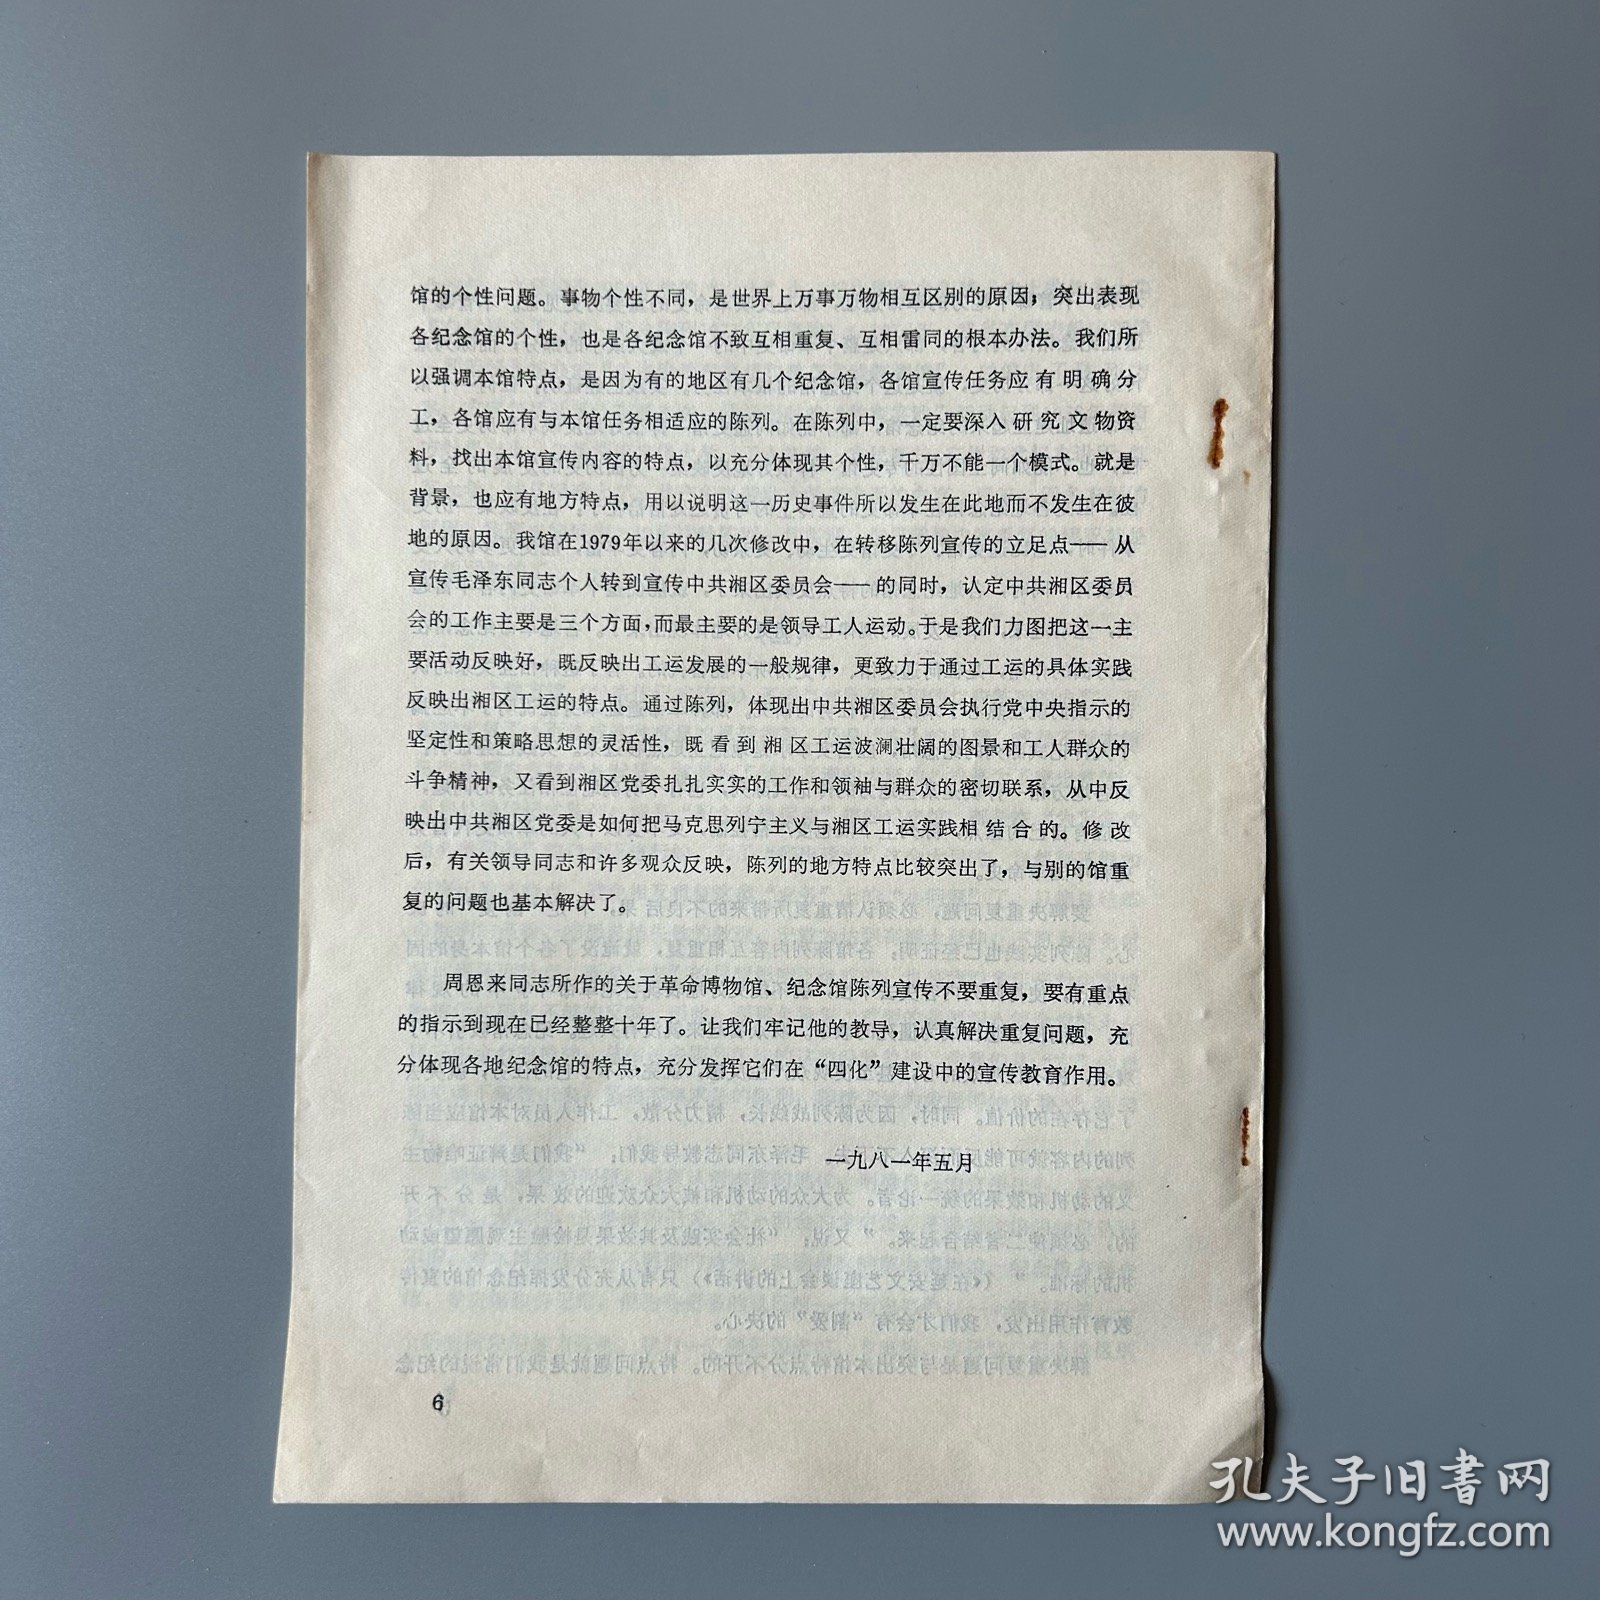 馆的个性问题。事物个性不同，是世界上万事万物相互区别的原因；突出表现
各纪念馆的个性，也是各纪念馆不致互相重复、互相雷同的根本办法。我们所
以强调本馆特点，是因为有的地区有几个纪念馆，各馆宣传任务应有明确分
工，各馆应有与本馆任务相适应的陈列。在陈列中，一定要深入研究文物资
料，找出本馆宣传内容的特点，以充分体现其个性，千万不能一个模式。就是
背景，也应有地方特点，用以说明这一历史事件所以发生在此地而不发生在彼
地的原因。我馆在1979年以来的几次修改中，在转移陈列宣传的立足点——从
宣传毛泽东同志个人转到宣传中共湘区委员会——的同时，认定中共湘区委员
会的工作主要是三个方面，而最主要的是领导工人运动。于是我们力图把这一主
要活动反映好，既反映出工运发展的一般规律，更致力于通过工运的具体实践
反映出湘区工运的特点。通过陈列，体现出中共湘区委员会执行党中央指示的
坚定性和策略思想的灵活性，既看到湘区工运波澜壮阔的图景和工人群众的
斗争精神，又看到湘区党委扎扎实实的工作和领袖与群众的密切联系，从中反
映出中共湘区党委是如何把马克思列宁主义与湘区工运实践相结合的。修改
后，有关领导同志和许多观众反映，陈列的地方特点比较突出了，与别的馆重
复的问题也基本解决了。
周恩来同志所作的关于革命博物馆、纪念馆陈列宣传不要重复，要有重点
的指示到现在已经整整十年了。让我们牢记他的教导，认真解决重复问题，充
分体现各地纪念馆的特点，充分发挥它们在“四化”建设中的宣传教育作用。
一九八一年五月
6
孔夫子旧书网
www.kongfz.com